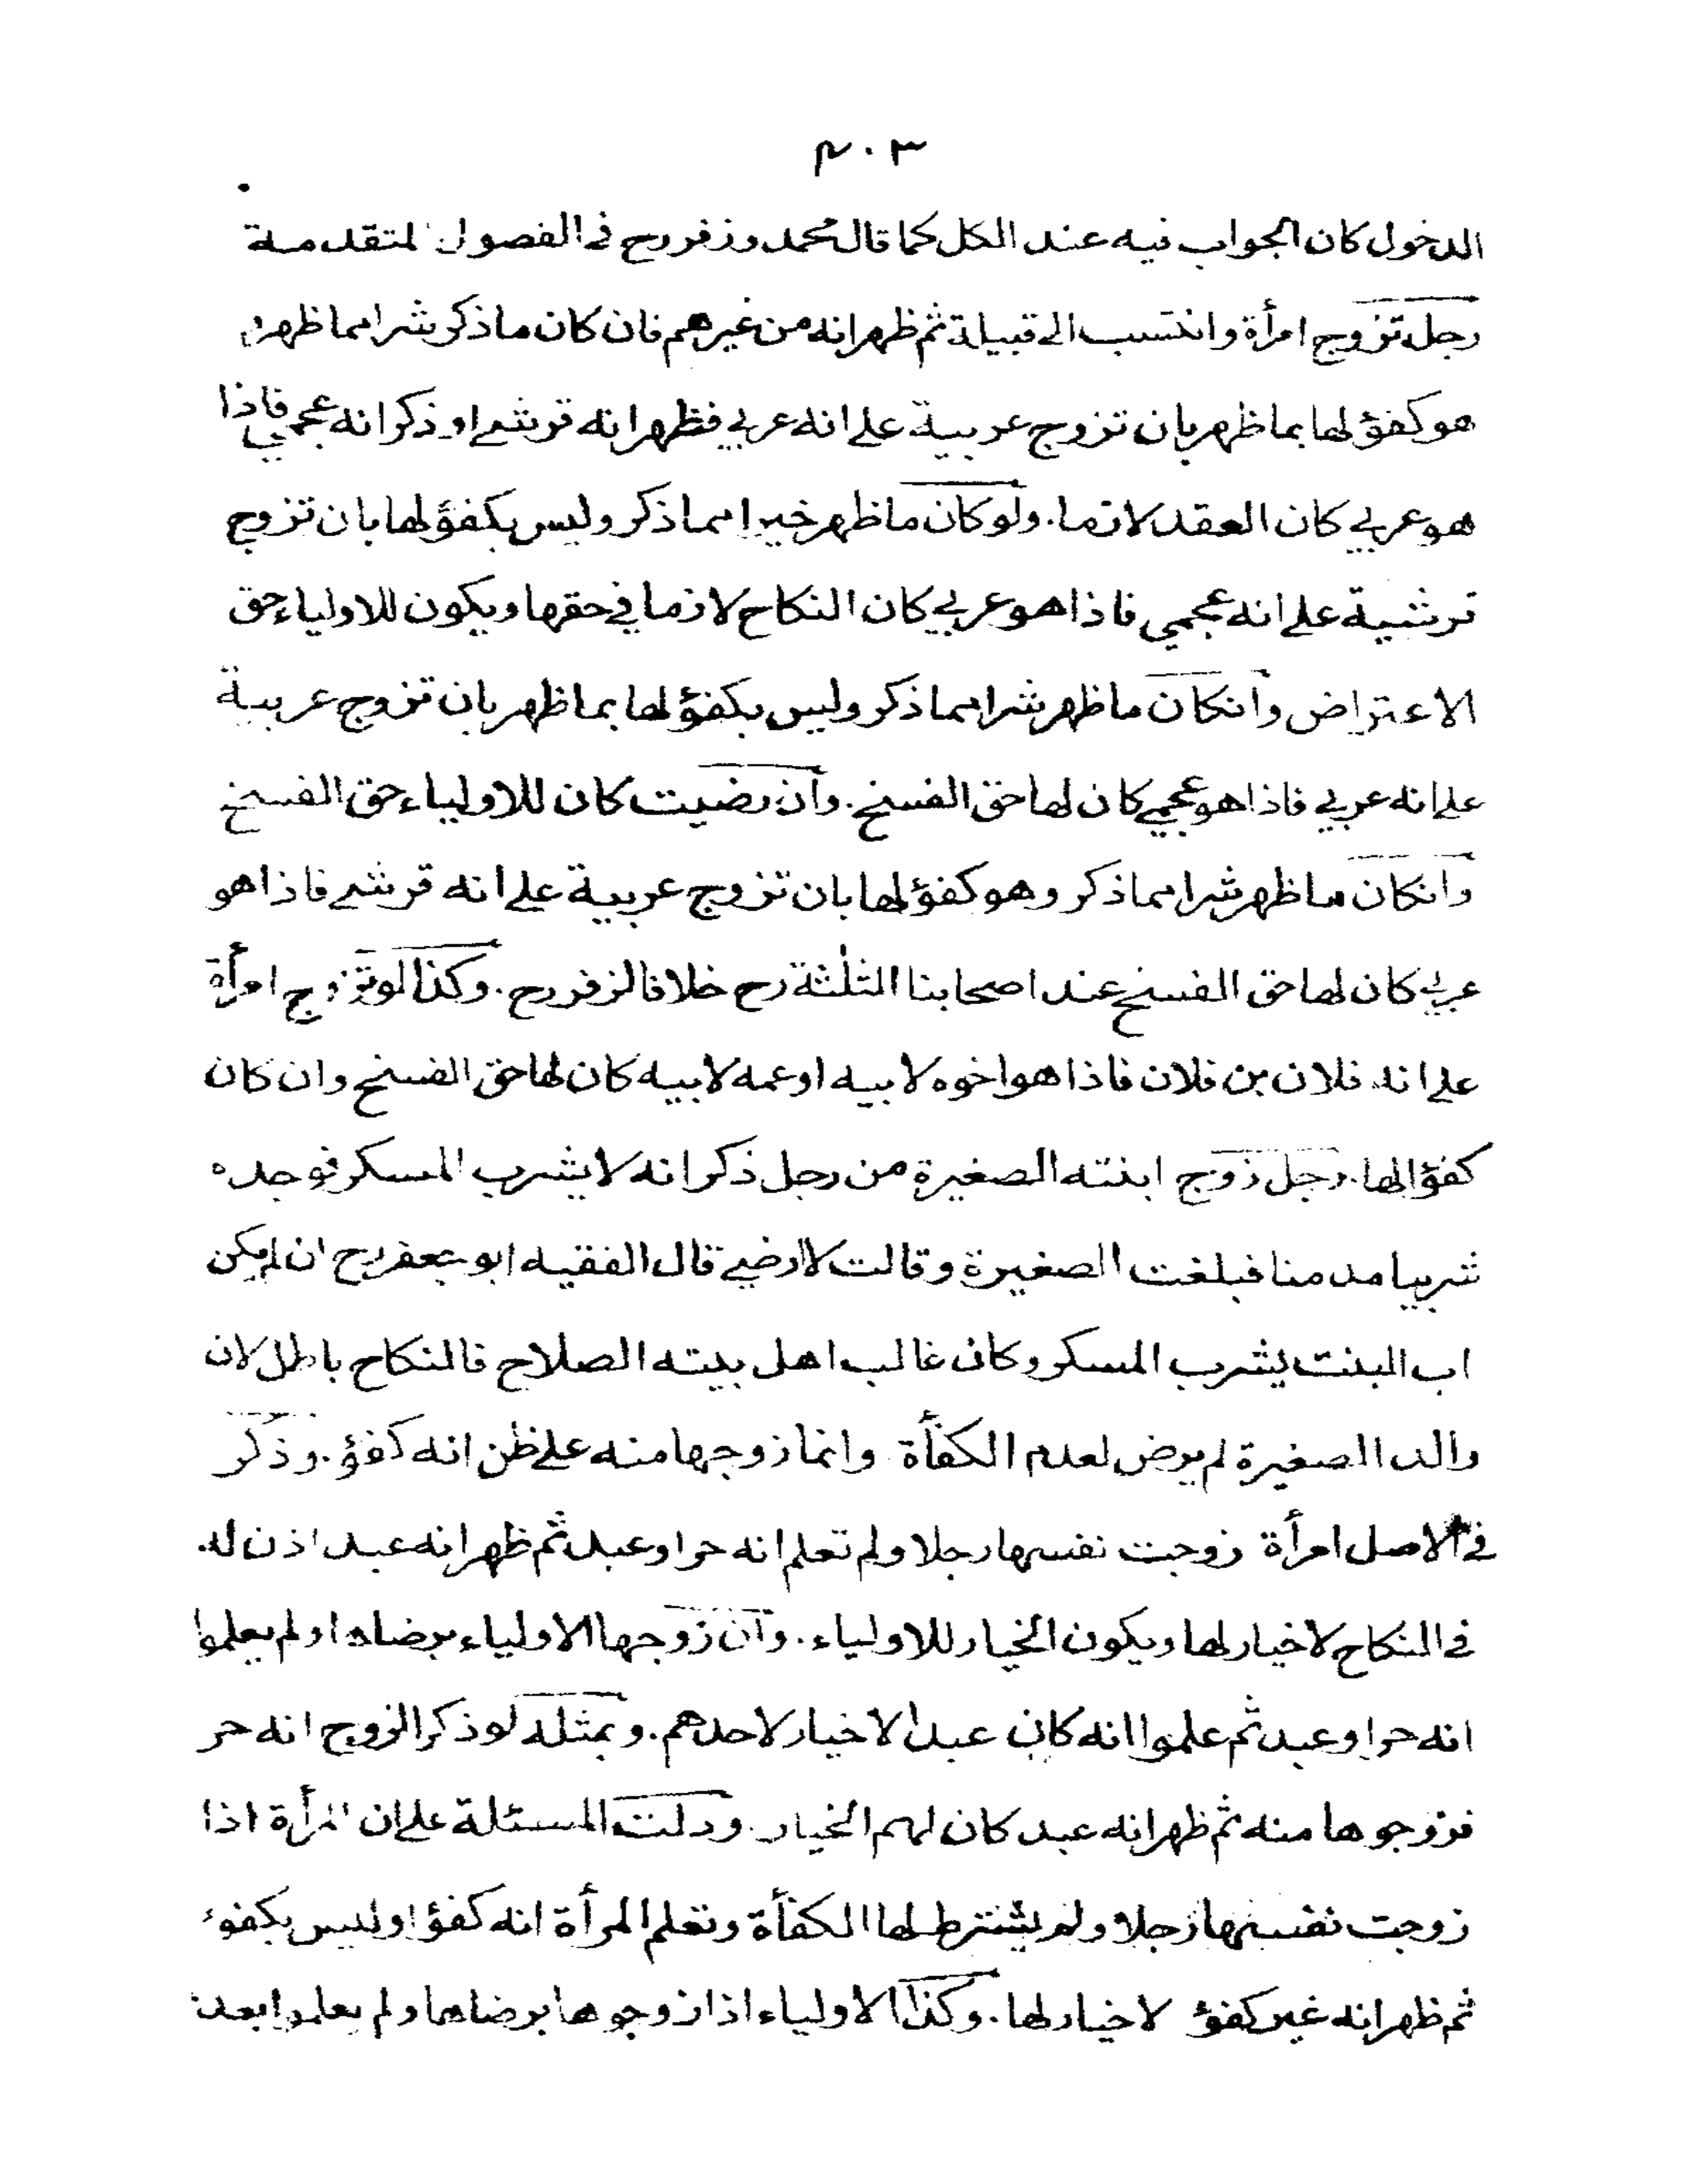 ٤٠٣
الدخول كان الجواب فيه عند الكل كما قال محمد وزفر رح في الفصول المتقدمة
رجل تزوج امرأة وانتسب الى قبيلة ثم ظهر انه من غيرهم فان كان ما ذكر شرا مما ظهر و
هو كفؤ لها بما ظهر بان تزوج عربية على انه عربي فظهر انه قرشي او ذكر انه عجمي فاذا
هو عربي كان العقد لازما. ولو كان ما ظهر خيرا مما ذكر وليس بكفؤ لها بان تزوج
قرشية على انه عجمي فاذا هو عربي كان النكاح لازما في حقها ويكون للاولياء حق
الاعتراض وانكان ما ظهر شرا مما ذكر وليس بكفؤ لها بما ظهر بان تزوج عربية
على انه عربي فاذا هو عجمي كان لها حق الفسخ. وان رضيت كان للاولياء حق الفسخ
وانكان ما ظهر شرا مما ذكر وهو كفؤ لها بان تزوج عربية على انه قرشي فاذا هو
عربي كان لها حق الفسخ عند اصحابنا الثلثة رح خلافا لزفر رح. وكذا لو تزوج امرأة
على انه فلان بن فلان فاذا هو اخوه لابيه او عمه لابيه كان لها حق الفسخ وان كان
كفؤا لها. رجل زوج ابنته الصغيرة من رجل ذكر انه لا يشرب المسكر فوجده
شريبا مدمنا فبلغت الصغيرة وقالت لا ارضى قال الفقيه ابو جعفر رح ان لم يكن
اب البنت يشرب المسكر وكان غالب اهل بيته الصلاح فالنكاح باطل لان
والد الصغيرة لم يرض لعدم الكفأة وانما زوجها منه على ظن انه كفؤ. وذكر
في الاصل امرأة زوجت نفسها رجلا ولم تعلم انه حر او عبد ثم ظهر انه عبد اذن له
في النكاح لا خيار لها ويكون الخيار للاولياء. وان زوجها الاولياء برضاها ولم يعلموا
انه حر او عبد ثم علموا انه كان عبدا لا خيار لاحدهم. وبمثله لو ذكر الزوج انه حر
فزوجوها منه ثم ظهر انه عبد كان لهم الخيار. ودلت المسئلة على ان المرأة اذا
زوجت نفسها رجلا ولم يشترط لها الكفأة وتعلم المرأة انه كفؤ او ليس بكفوء
ثم ظهر انه غير كفؤ لا خيار لها. وكذا الاولياء اذا زوجوها برضاها ولم يعلموا بعد